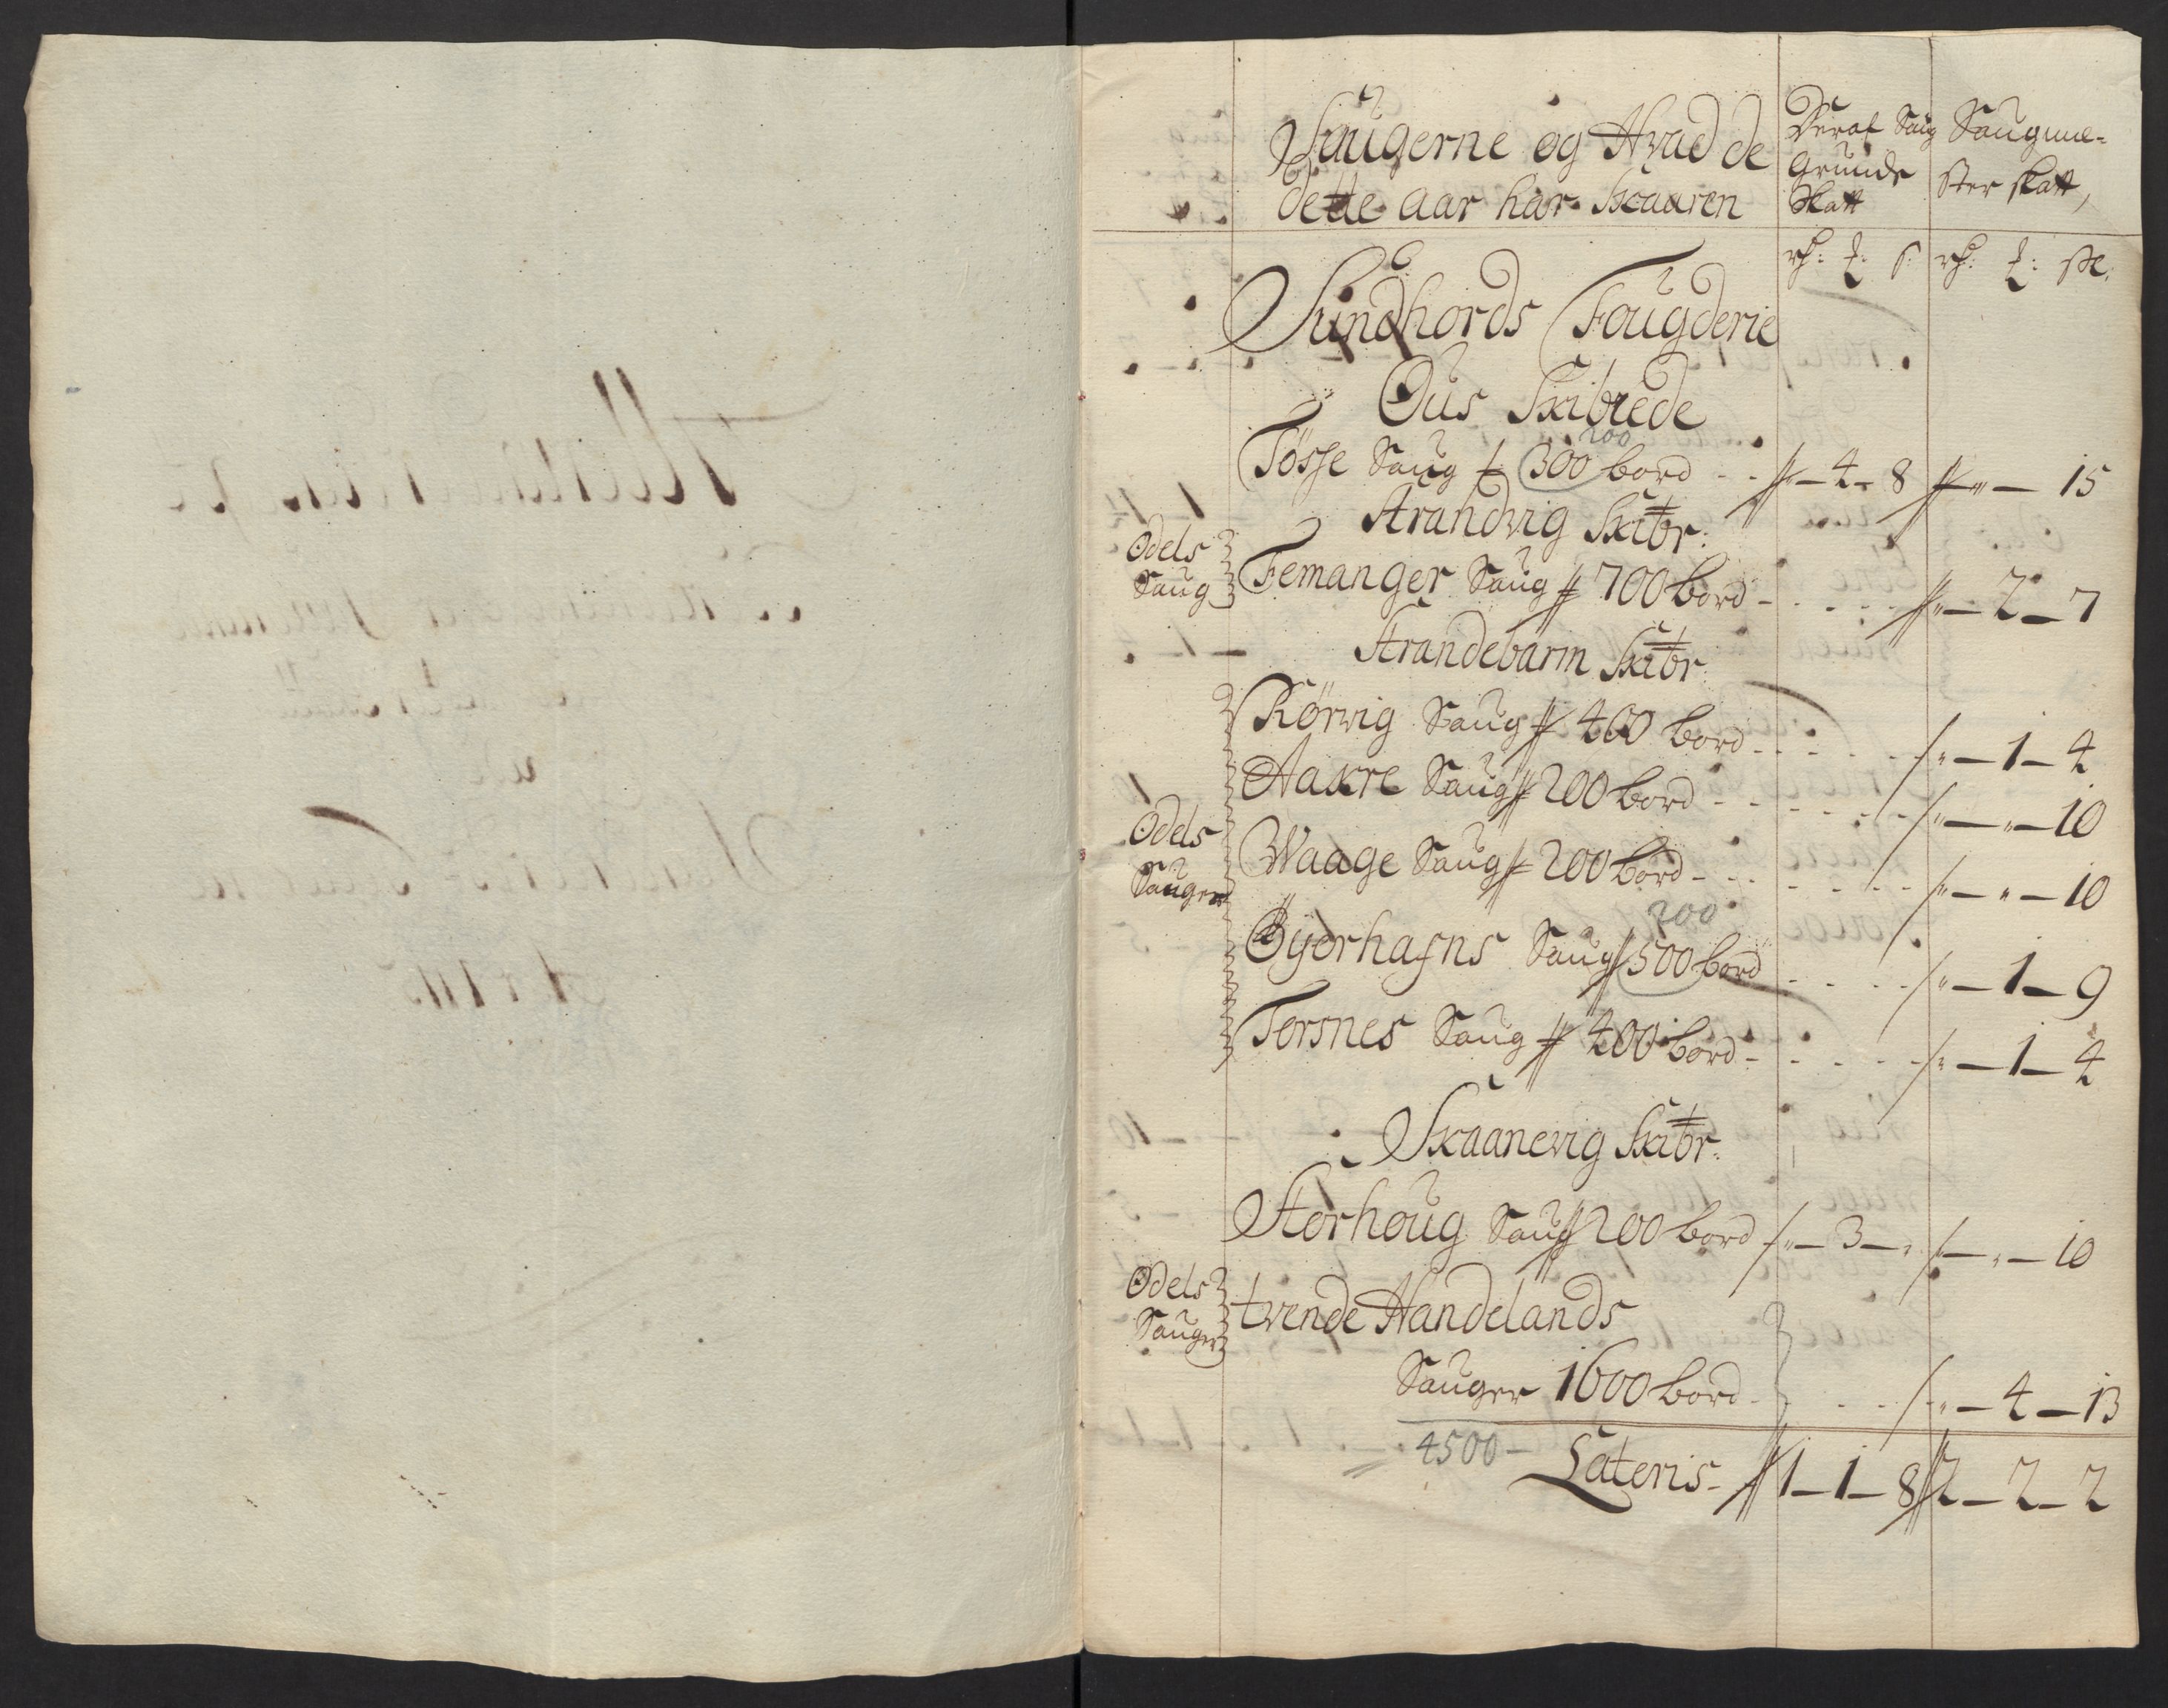 Saugerne og Hvad de
dette aar har Skaaren
Deraf Saug
Grunde
Skatt
Saugme-
ster skatt,
rh: ʒ: s: rh: ʒ: sk:
Sundhords Fougderie
Ous Skibrede
200
Tösse Saug 300 bord - - „ — 4 - 8 „ — 15
Strandvig Skibr:
Odels
Saug
Femanger Saug 700 bord - - - - - „ — 2 — 7
Strandebarm Skibr:
Körvig Saug 400 bord - - - - - „ — 1 — 4
Aakre Saug 200 bord - - - - - „ — „ — 10
Odels
Sauger
Waage Saug 200 bord - - - - - „ — „ — 10
200
Gyerhafns Saug 500 bord - - - - „ — 1 — 9
Torsnes Saug 400 bord - - - - - „ — 1 — 4
Skaanevig Skibr:
Storhoug Saug 200 bord „ — 3 — „ — „ — 10
Odels
Sauger
tvende Handelands
Sauger 1600 bord - - - - „ — 4 — 13
4500 —
Lateris - 1 — 1 — 8 2 — 2 — 2